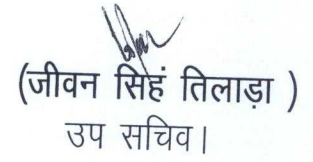 (जीवन सिंहं तिलाड़ा )
उप सचिव।